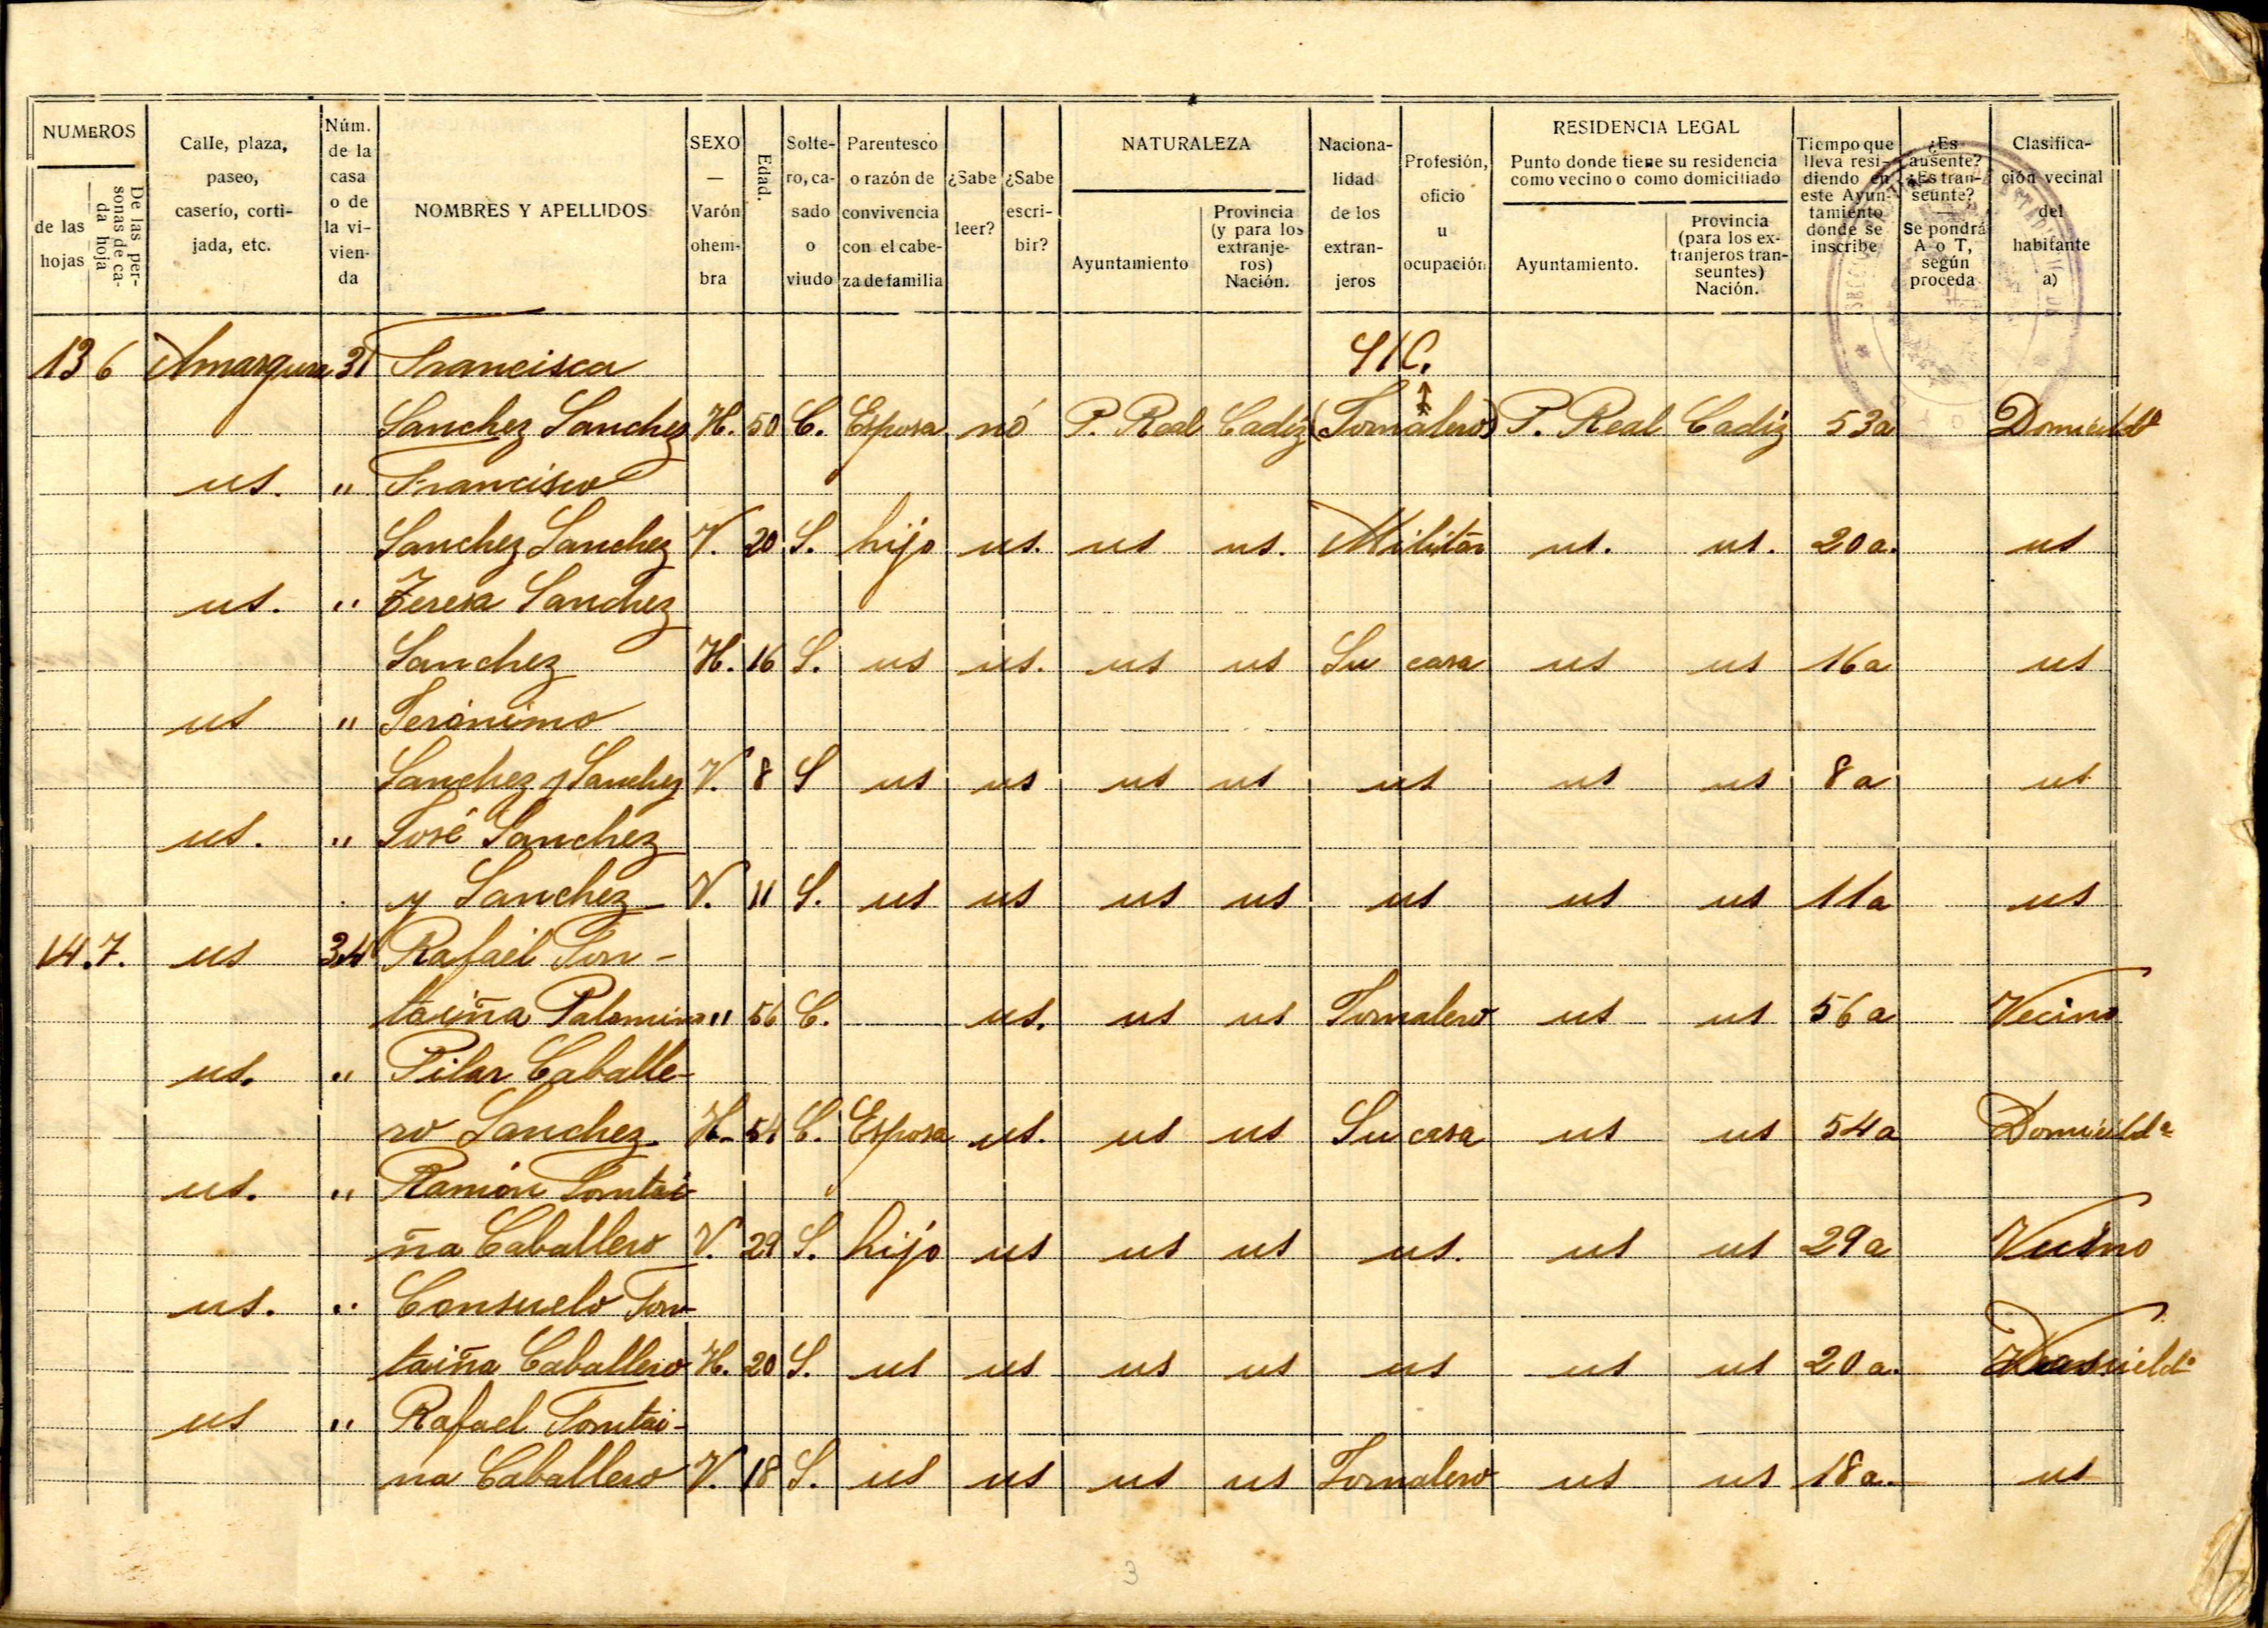 NUMEROS
de las hojas
De las personas de cada hoja
Calle, plaza, paseo, caserío, cortijada, etc.
Núm. de la casa o de la vivienda
NOMBRES Y APELLIDOS
SEXO — Varón o hembra
Edad.
Soltero, casado o viudo
Parentesco o razón de convivencia con el cabeza de familia
¿Sabe leer?
¿Sabe escribir?
NATURALEZA
Ayuntamiento
Provincia (y para los extranjeros) Nación.
Nacionalidad de los extranjeros
Profesión, oficio u ocupación
RESIDENCIA LEGAL
Punto donde tiene su residencia como vecino o como domiciliado
Ayuntamiento.
Provincia (para los extranjeros transeuntes) Nación.
Tiempo que lleva residiendo en este Ayuntamiento donde se inscribe
¿Es ausente? ¿Es transeunte? Se pondrá A o T, según proceda
Clasificación vecinal del habitante a)
13 6 Amargura 31 Francisca S/C.
Sanchez Sanchez H. 50 C. Esposa nó P. Real Cadiz (Jornalero) P. Real Cadiz 53a Domicildº
us. " Francisco
Sanchez Sanchez V. 20 S. hijo us. us us. Militar us. us. 20a. us
us. " Teresa Sanchez
Sanchez H. 16 S. us us. us us Su casa us us 16a us
us " Jerónimo
Sanchez y Sanchez V. 8 S us us us us us us us 8a us
us. " José Sanchez
y Sanchez V. 11 S. us us us us us us us 11a us
14. 7. us 34 Rafael Fon-
taiña Palomino " 56 C. us. us us Jornalero us us 56a Vecino
us. " Pilar Caballe-
ro Sanchez. H. 54 C. Esposa us. us us Su casa us us 54a Domicildª
us. " Ramón Fontai-
ña Caballero V. 29 S. hijo us us us us. us us 29a Vecino
us. " Consuelo Fon-
taiña Caballero H. 20 S. us us us us us us us 20a.
us " Rafael Fontai-
na Caballero V. 18 S. us us us us Jornalero us us 18a. us
3